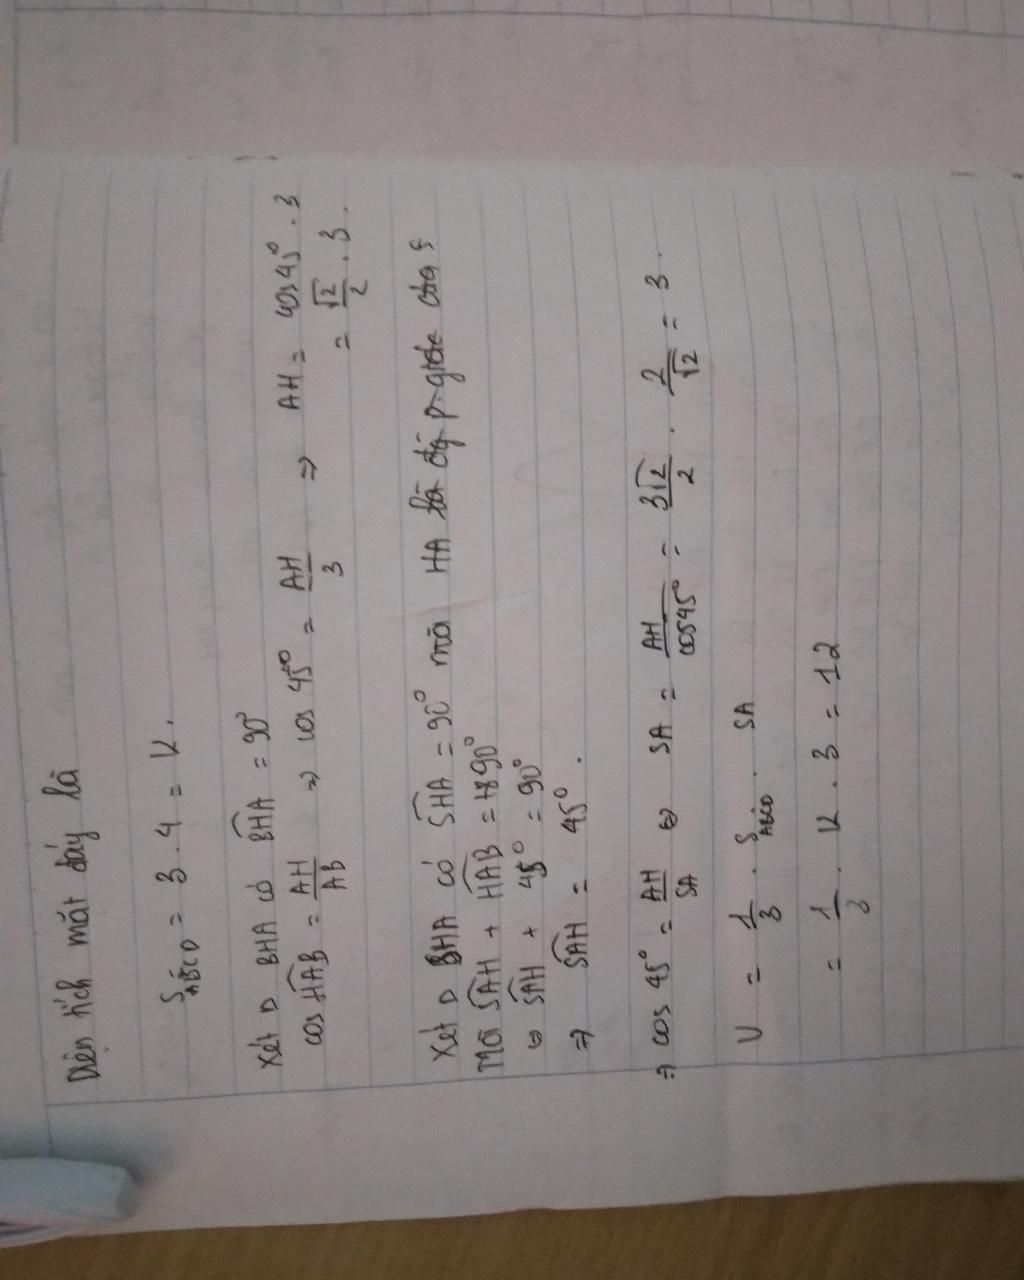 Diện tích mặt đáy là
S ABCD = 3 . 4 = 12.
Xét Δ BHA có BHA = 90°
cos HAB = AH/AB => cos 45° = AH/3 => AH = cos 45° . 3
= √2/2 . 3 .
Xét Δ BHA có SHA = 90° mà HA là
Mà SAH + HAB = 90°
⇔ SAH + 45° = 90°
=> SAH = 45° .
=> cos 45° = AH/SA ⇔ SA = AH/cos45° = 3√2/2 . 2/√2 = 3 .
V = 1/3 . S ABCD . SA
= 1/3 . 12 . 3 = 12